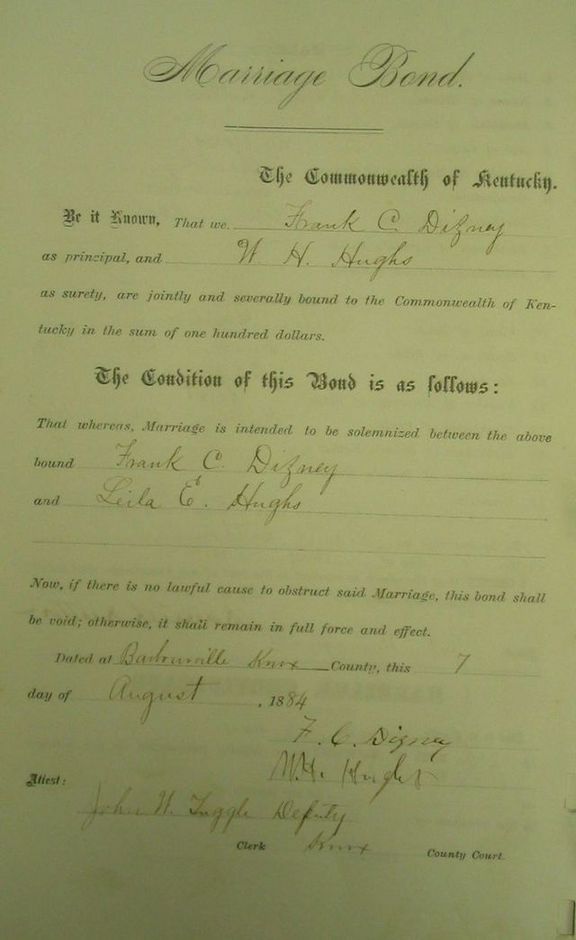 Marriage Bond.
The Commonwealth of Kentucky.
Be it Known, That we Frank C. Dizney
as principal, and W. H. Hughs
as surety, are jointly and severally bound to the Commonwealth of Ken-
tucky in the sum of one hundred dollars.
The Condition of this Bond is as follows:
That whereas, Marriage is intended to be solemnized between the above
bound Frank C. Dizney
and Leila E. Hughs
Now, if there is no lawful cause to obstruct said Marriage, this bond shall
be void; otherwise, it shall remain in full force and effect.
Dated at Barbourville Knox County, this 7
day of August, 1884
F. C. Dizney
W. H. Hughs
Attest:
John W. Tuggle Deputy
Clerk Knox County Court.